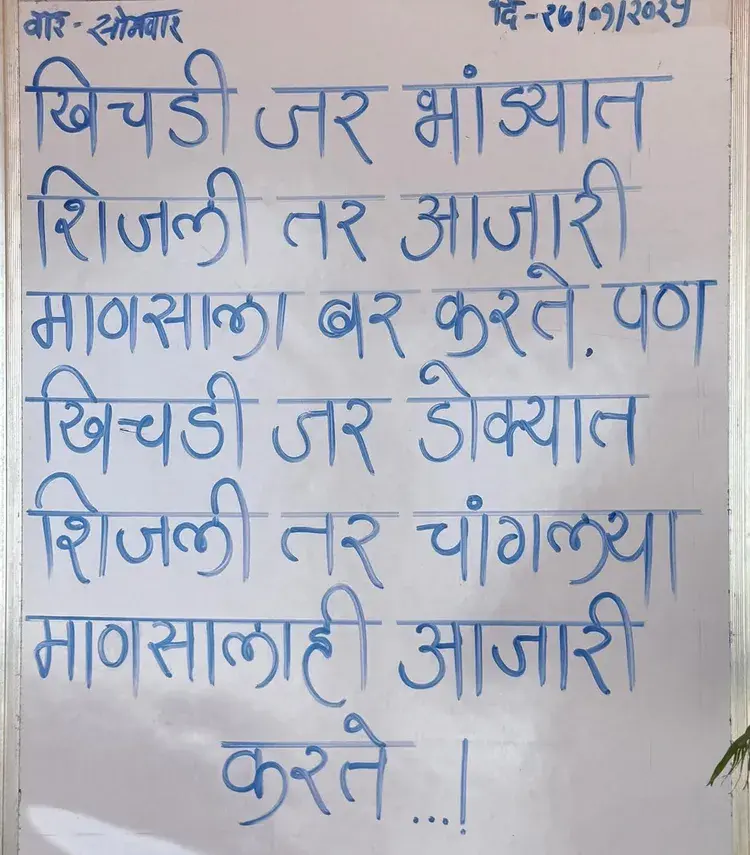 वार - सोमवार दि-२७/०१/२०२५
खिचडी जर भांड्यात
शिजली तर आजारी
माणसाला बर करते. पण
खिचडी जर डोक्यात
शिजली तर चांगल्या
माणसालाही आजारी
करते...!